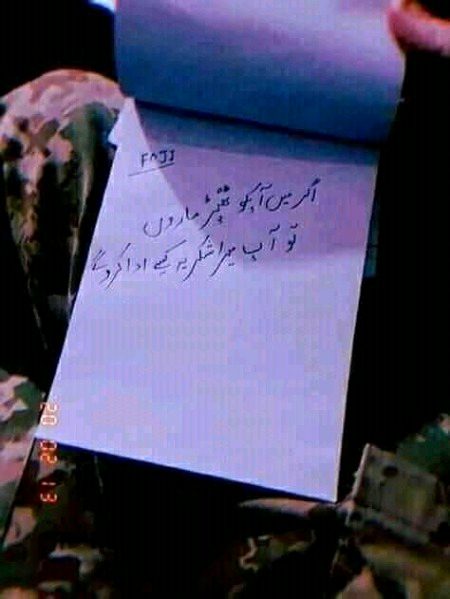 FAJI
اگر میں آپکو تھپڑ ماروں
تو آپ میرا شکریہ کیسے ادا کروگے
20 02 13